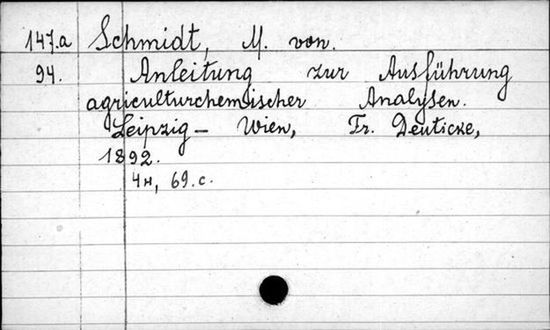 147.a Schmidt, M. von.
94. Anleitung zur Ausführung
agriculturchemischer Analysen.
Leipzig - Wien, Fr. Deuticke,
1892.
4н, 69.c.